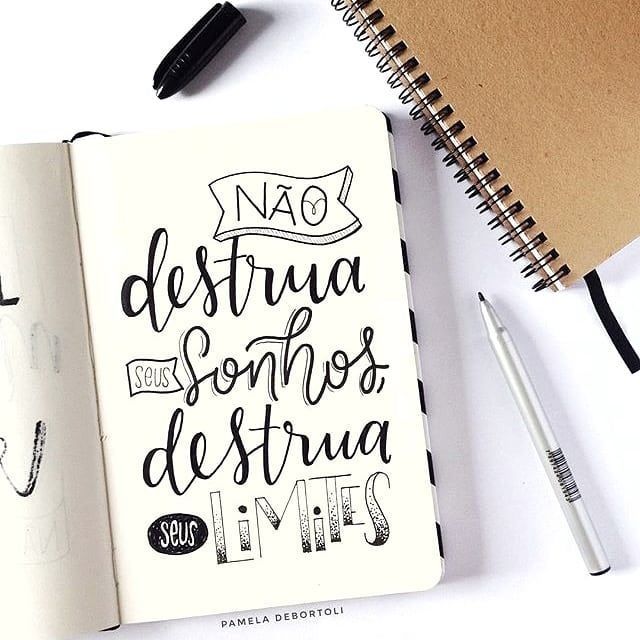 NÃO
destrua
seus sonhos,
destrua
seus LiMiTES
PAMELA DEBORTOLI